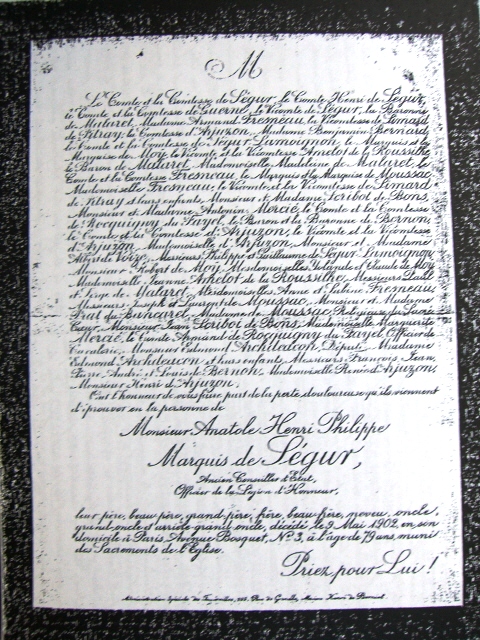 M
Le Comte et la Comtesse de Ségur, le Comte Henri de Ségur,
le Comte et la Comtesse de Guerne, le Vicomte de Ségur, la Baronne
de Malaret, Madame Armand Fresneau, la Vicomtesse de Simard
de Pitray, la Comtesse d'Arjuzon, Madame Benjamin Bernard,
le Comte et la Comtesse de Ségur Lamoignon, le Marquis et la
Marquise de Moy, le Vicomte et la Vicomtesse Amelot de la Roussilhe,
le Baron de Malaret, Mademoiselle Madeleine de Malaret, le
Comte et la Comtesse Fresneau, le Marquis et la Marquise de Moussac,
Mademoiselle Fresneau, le Vicomte et la Vicomtesse de Simard
de Pitray et leurs enfants, Monsieur et Madame Loribol de Bons,
Monsieur et Madame Antonin Mercié, le Comte et la Comtesse
de Rocquigny du Fayel, le Baron et la Baronne de Bernon,
le Comte et la Comtesse d'Arjuzon, le Vicomte et la Vicomtesse
d'Arjuzon, Mademoiselle d'Arjuzon, Monsieur et Madame
de Voize, Messieurs Philippe et Guillaume de Ségur Lamoignon,
Monsieur Robert de Moy, Mesdemoiselles Yolande et Claude de Moy,
Mademoiselle Jeanne Amelot de la Roussilhe, Messieurs
et Serge de Malaret, Mesdemoiselles Anne et Sabine Fresneau,
Messieurs Joseph et Laurent de Moussac, Monsieur et Madame
Prat du Madame de Moussac, Religieuse du Sacré
Cœur, Monsieur Jean Loribol de Bons, Mademoiselle Marguerite
Mercié, le Comte Armand de Rocquigny du Fayel, Officier de
Cavalerie, Monsieur Edmond Archdeacon, Député, Madame
Edmond Archdeacon et leurs enfants, Messieurs François, Jean,
Pierre, André et Louis de Bernon, Mademoiselle d'Arjuzon,
Monsieur Henri d'Arjuzon,
Ont l'honneur de vous faire part de la perte douloureuse qu'ils viennent
d'éprouver en la personne de
Monsieur Anatole Henri Philippe
Marquis de Ségur,
Ancien Conseiller d'Etat,
Officier de la Légion d'Honneur,
leur père, beau-père, grand-père, frère, beau-frère, neveu, oncle,
grand-oncle et arrière grand-oncle, décédé le 9 Mai 1902, en son
domicile à Paris, Avenue Bosquet, N° 3, à l'âge de 79 ans, muni
des Sacrements de l'Eglise.
Priez pour Lui!
Administration spéciale de Funérailles, Rue de Maison Henri de Borniol.